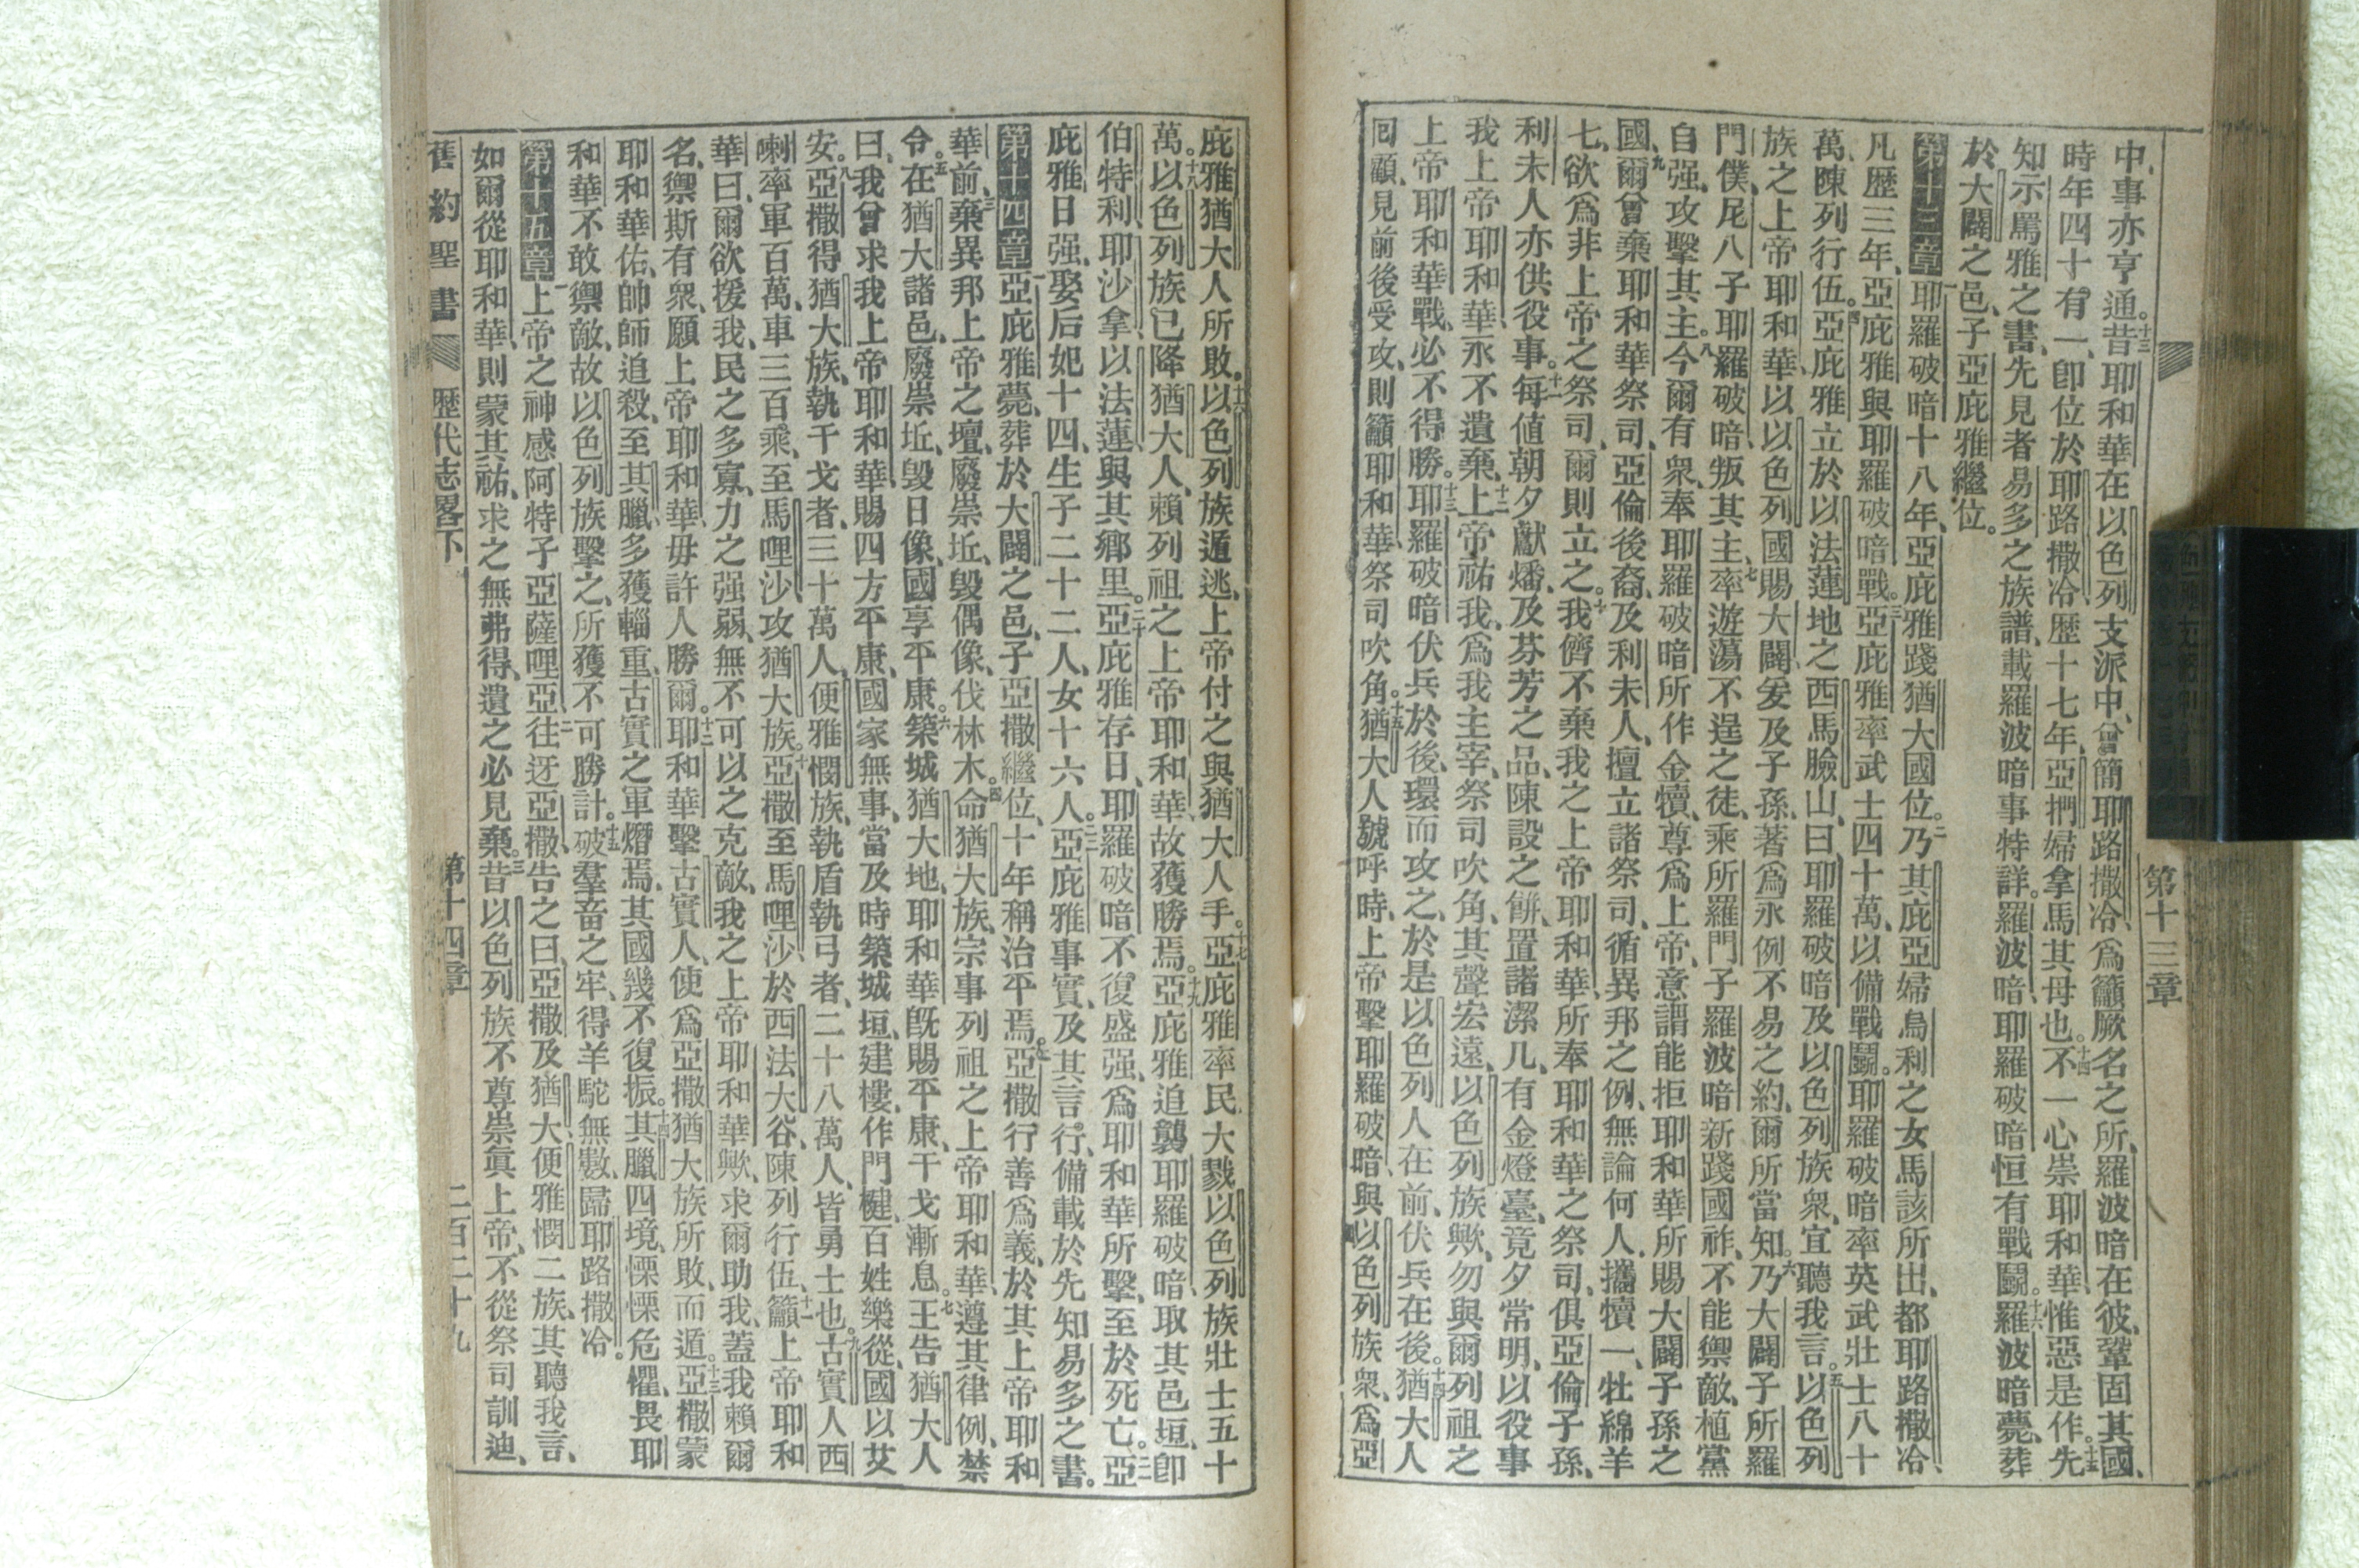 第十三章
中、事亦亨通。十三昔耶和華在以色列支派中、曾簡耶路撒冷、爲籲厥名之所、羅波暗在彼、鞏固其國、
時年四十有一、卽位於耶路撒冷、歷十七年、亞捫婦拿馬其母也。十四不一心崇耶和華、惟惡是作。十五先
知示罵雅之書、先見者易多之族譜、載羅波暗事特詳。羅波暗、耶羅破暗恒有戰鬭。十六羅波暗薨、葬
於大闢之邑、子亞庇雅繼位。
第十三章一耶羅破暗十八年、亞庇雅踐猶大國位。二乃其庇亞婦烏利之女馬該所出、都耶路撒冷、
凡歷三年、亞庇雅與耶羅破暗戰。三亞庇雅率武士四十萬、以備戰鬭。耶羅破暗率英武壯士八十
萬、陳列行伍。四亞庇雅立於以法蓮地之西馬臉山、曰、耶羅破暗及以色列族衆、宜聽我言。五以色列
族之上帝耶和華、以以色列國賜大闢、爰及子孫、著爲永例不易之約、爾所當知。六乃大闢子所羅
門僕、尼八子耶羅破暗、叛其主、七率遊蕩不逞之徒、乘所羅門子羅波暗新踐國祚、不能禦敵、植黨
自强、攻擊其主。八今爾有衆、奉耶羅破暗所作金犢、尊爲上帝、意謂能拒耶和華所賜大闢子孫之
國、九爾曾棄耶和華祭司、亞倫後裔、及利未人、擅立諸祭司、循異邦之例、無論何人、攜犢一、牡綿羊
七、欲爲非上帝之祭司、爾則立之。十我儕不棄我之上帝耶和華、所奉耶和華之祭司、俱亞倫子孫、
利未人亦供役事。十一每值朝夕獻燔、及芬芳之品、陳設之餅、置諸潔几、有金燈臺、竟夕常明、以役事
我上帝耶和華、永不遺棄、十二上帝祐我、爲我主宰、祭司吹角、其聲宏遠、以色列族歟、勿與爾列祖之
上帝耶和華戰、必不得勝。十三耶羅破暗伏兵於後、環而攻之、於是以色列人在前、伏兵在後。十四猶大人
囘顧、見前後受攻、則籲耶和華、祭司吹角。十五猶大人號呼時、上帝擊耶羅破暗、與以色列族衆、爲亞
庇雅猶大人所敗、十六以色列族遁逃、上帝付之與猶大人手。十七亞庇雅率民大戮以色列族壯士五十
萬。十八以色列族已降猶大人、賴列祖之上帝耶和華、故獲勝焉。十九亞庇雅追襲耶羅破暗、取其邑垣、卽
伯特利、耶沙拿、以法蓮、與其鄉里。二十亞庇雅存日、耶羅破暗不復盛强、爲耶和華所擊、至於死亡。二一亞
庇雅日强、娶后妃十四、生子二十二人、女十六人。二二亞庇雅事實、及其言行、備載於先知易多之書。
第十四章一亞庇雅薨、葬於大闢之邑、子亞撒繼位、十年稱治平焉。二亞撒行善爲義、於其上帝耶和
華前、三棄異邦上帝之壇、廢崇坵、毀偶像、伐林木。四命猶大族、宗事列祖之上帝耶和華、遵其律例、禁
令。五在猶大諸邑、廢崇坵、毀日像、國享平康。六築城猶大地、耶和華旣賜平康、干戈漸息。七王告猶大人
曰、我曾求我上帝耶和華、賜四方平康、國家無事、當及時築城垣、建樓、作門楗、百姓樂從、國以艾
安。八亞撒得猶大族、執干戈者、三十萬人、便雅憫族、執盾執弓者、二十八萬人、皆勇士也。九古實人西
喇率軍百萬、車三百乘、至馬哩沙攻猶大族。十亞撒至馬哩沙、於西法大谷、陳列行伍、十一籲上帝耶和
華曰、爾欲援我、民之多寡、力之强弱、無不可以之克敵、我之上帝耶和華歟、求爾助我、蓋我賴爾
名、禦斯有衆、願上帝耶和華、毋許人勝爾。十二耶和華擊古實人、使爲亞撒猶大族所敗、而遁。十三亞撒蒙
耶和華佑、帥師追殺、至其臘、多獲輜重、古實之軍熸焉、其國幾不復振。十四其臘四境、慄慄危懼、畏耶
和華、不敢禦敵、故以色列族擊之、所獲不可勝計。十五破羣畜之牢、得羊駝無數、歸耶路撒冷。
第十五章一上帝之神感阿特子亞薩哩亞、二往迓亞撒、告之曰、亞撒及猶大、便雅憫二族、其聽我言、
如爾從耶和華、則蒙其祐、求之無弗得、遺之必見棄。三昔以色列族不尊崇眞上帝、不從祭司訓迪、
舊約聖書 歷代志畧下 第十四章 二百二十九